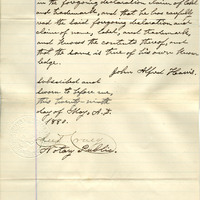 in the foregoing declaration claim of label
and trademark, and that he has carefully
read the said foregoing declaration and
claim of name, label, and trademark,
and knows the contents thereof, and
that the same is true of his own know-
ledge.
John Alfred Harris.
Subscribed and
sworn to before me,
this twenty-ninth
day of May, A.D.
1880.
Notary Public.